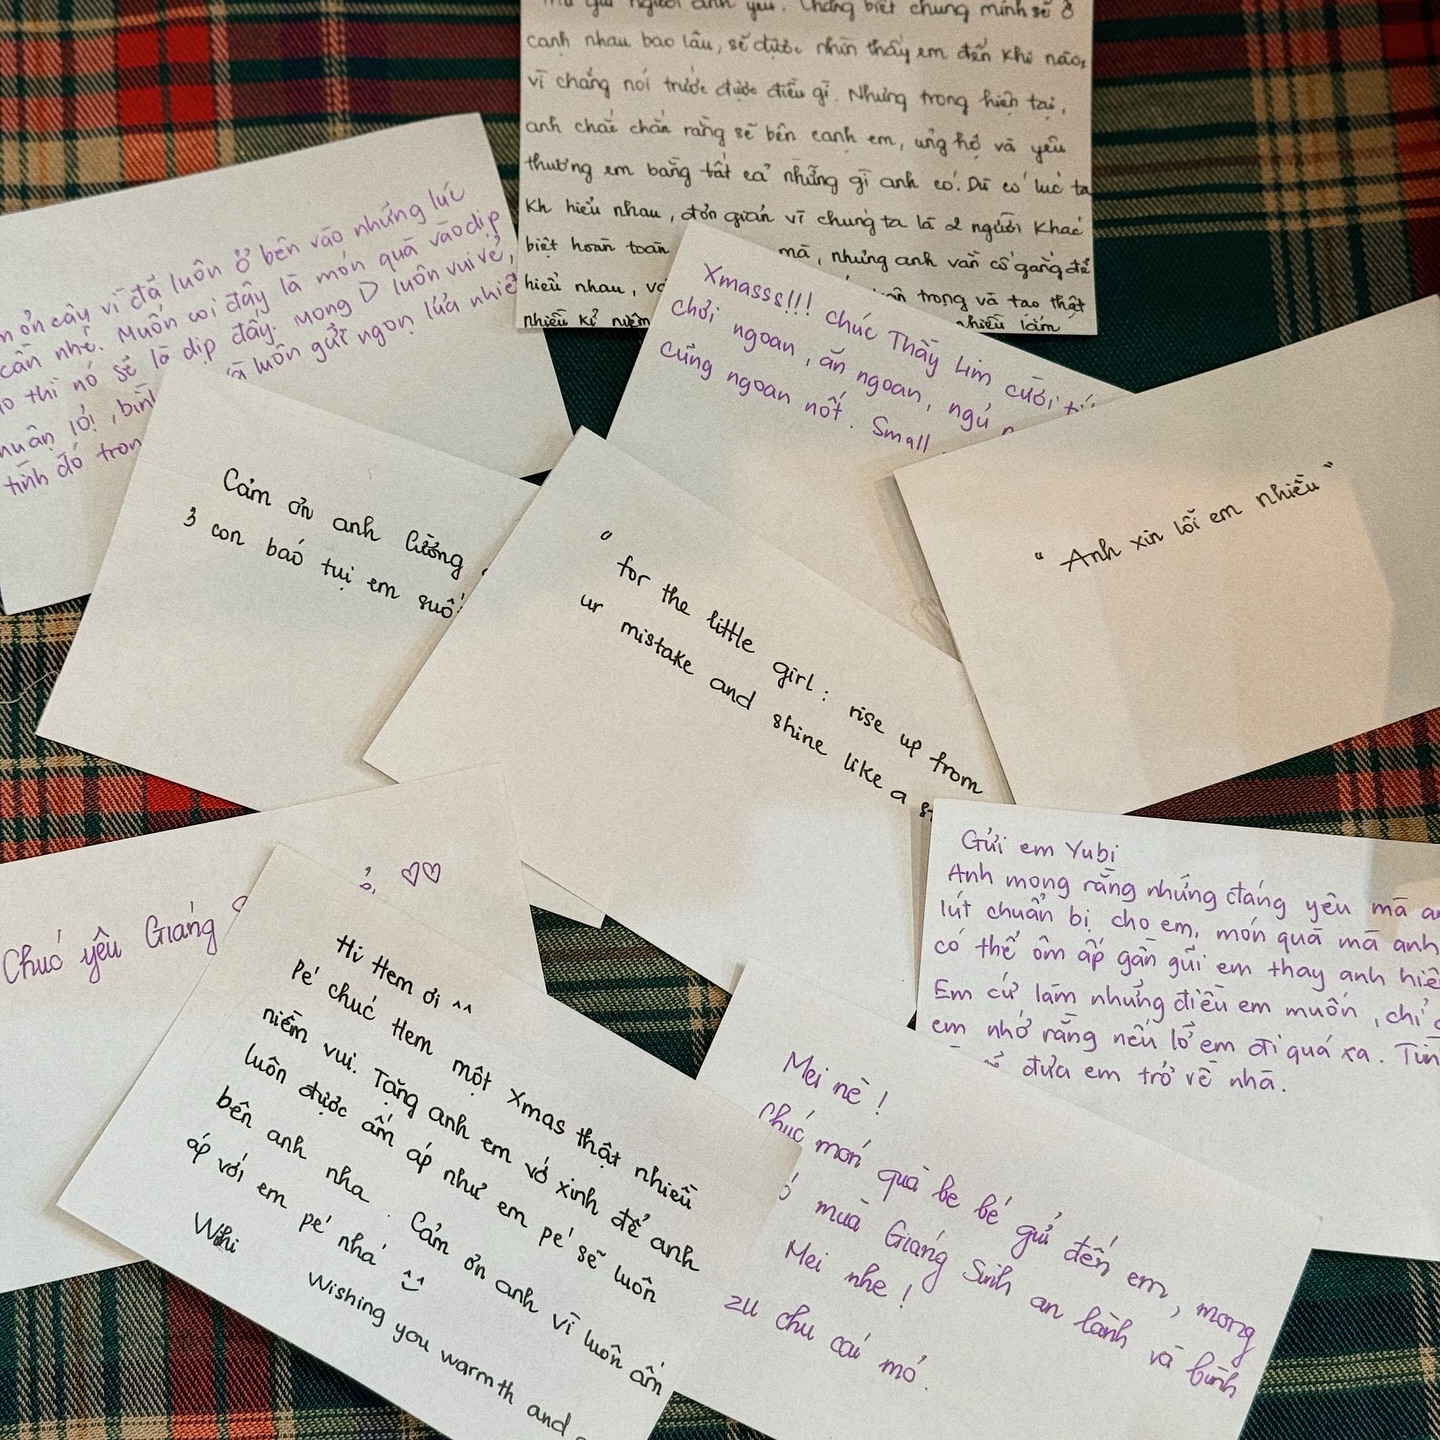 Thư gửi người anh yêu. Chẳng biết chúng mình sẽ ở
cạnh nhau bao lâu, sẽ được nhìn thấy em đến khi nào,
vì chẳng nói trước được điều gì. Nhưng trong hiện tại,
anh chắc chắn rằng sẽ bên cạnh em, ủng hộ và yêu
thương em bằng tất cả những gì anh có. Dù có lúc ta
kh hiểu nhau, đơn giản vì chúng ta là 2 người khác
biệt hoàn toàn mà, nhưng anh vẫn cố gắng để
hiểu nhau, trọng và tạo thật
nhiều kỉ niệm nhiều lắm
ơn cậy vì đã luôn ở bên vào những lúc
cần nhé. Muốn coi đây là món quà vào dịp
thì nó sẽ là dịp đấy. Mong D luôn vui vẻ,
luôn gửi ngọn lửa
tình đó
Xmasss!!! chúc Thầy Lim cười
chơi ngoan, ăn ngoan, ngủ
cũng ngoan nốt. Small
Cảm ơn anh Cường
3 con báo tụi em
" for the little girl : rise up from
ur mistake and shine like a
" Anh xin lỗi em nhiều "
Chúc yêu Giáng
♡♡
Gửi em Yubi
Anh mong rằng những đáng yêu mà
lút chuẩn bị cho em, món quà mà anh
có thể ôm ấp gần gũi em thay anh
Em cứ làm những điều em muốn, chỉ
em nhớ rằng nếu lỡ em đi quá xa.
đưa em trở về nhà.
Hi Hem ơi ^^
Pé chúc Hem một Xmas thật nhiều
niềm vui. Tặng anh em vớ xinh để anh
luôn được ấm áp như em pé sẽ luôn
bên anh nha. Cảm ơn anh vì luôn ấm
áp với em pé nhá ^^
Whi
Wishing you warmth and
Mei nè !
Chúc món quà be bé gửi đến em, mong
mùa Giáng Sinh an lành và bình
Mei nhe !
zu chu cái mỏ.